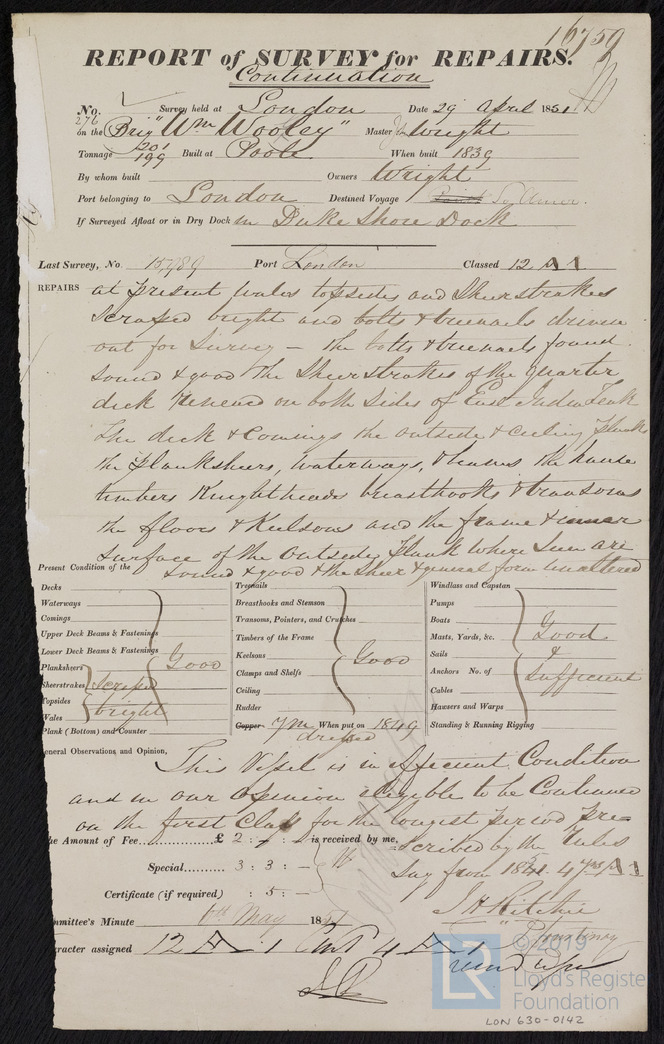 16759
REPORT of SURVEY for REPAIRS.
Continuation
No. 276 Survey held at London Date 29 April 1851
on the Brig "Wm Wooley" Master Wright
Tonnage 201 199 Built at Poole When built 1839
By whom built Owners Wright
Port belonging to London Destined Voyage
If Surveyed Afloat or in Dry Dock in Duke Shore Dock
Last Survey, No. 15989 Port London Classed 12 A1
REPAIRS at present wales topsides and Sheerstrakes
Scraped bright and bolts & treenails driven
out for Survey — the bolts & treenails found
sound & good the Sheerstrakes of the quarter
deck renewed on both sides of East India Teak
The deck & Comings the outside & ceiling plank
the planksheers, waterways, & beams the hawse
timbers Knightheads breasthooks & transoms
the floors & Keelsons and the frame & inner
surface of the outside plank where seen are
sound & good & the sheer & general form unaltered
Present Condition of the
Decks
Waterways
Comings
Upper Deck Beams & Fastenings
Lower Deck Beams & Fastenings
Planksheers
Good
Sheerstrakes
Topsides
Wales
Scraped bright
Plank (Bottom) and Counter
Treenails
Breasthooks and Stemson
Transoms, Pointers, and Crutches
Timbers of the Frame
Keelsons
Clamps and Shelfs
Ceiling
Rudder
Good
Copper YM When put on 1849
dressed
Windlass and Capstan
Pumps
Boats
Masts, Yards, &c.
Sails
Anchors No. of
Cables
Hawsers and Warps
Standing & Running Rigging
Good & Sufficient
eneral Observations and Opinion,
This Vessel is in efficient Condition
and in our Opinion eligible to be Continued
on the first Class for the longest period pre=
scribed by the Rules
he Amount of Fee £ 2 : is received by me,
Special 3 : 3 : —
Say from 1851. 4 yrs A1
Certificate (if required) : 5 : —
J H Ritchie
mmittee's Minute 6th May 1851
racter assigned 12 A 1 Cont 4 A 1
© 2019
LR
Lloyd's Registe
Foundation
LON 630-0142